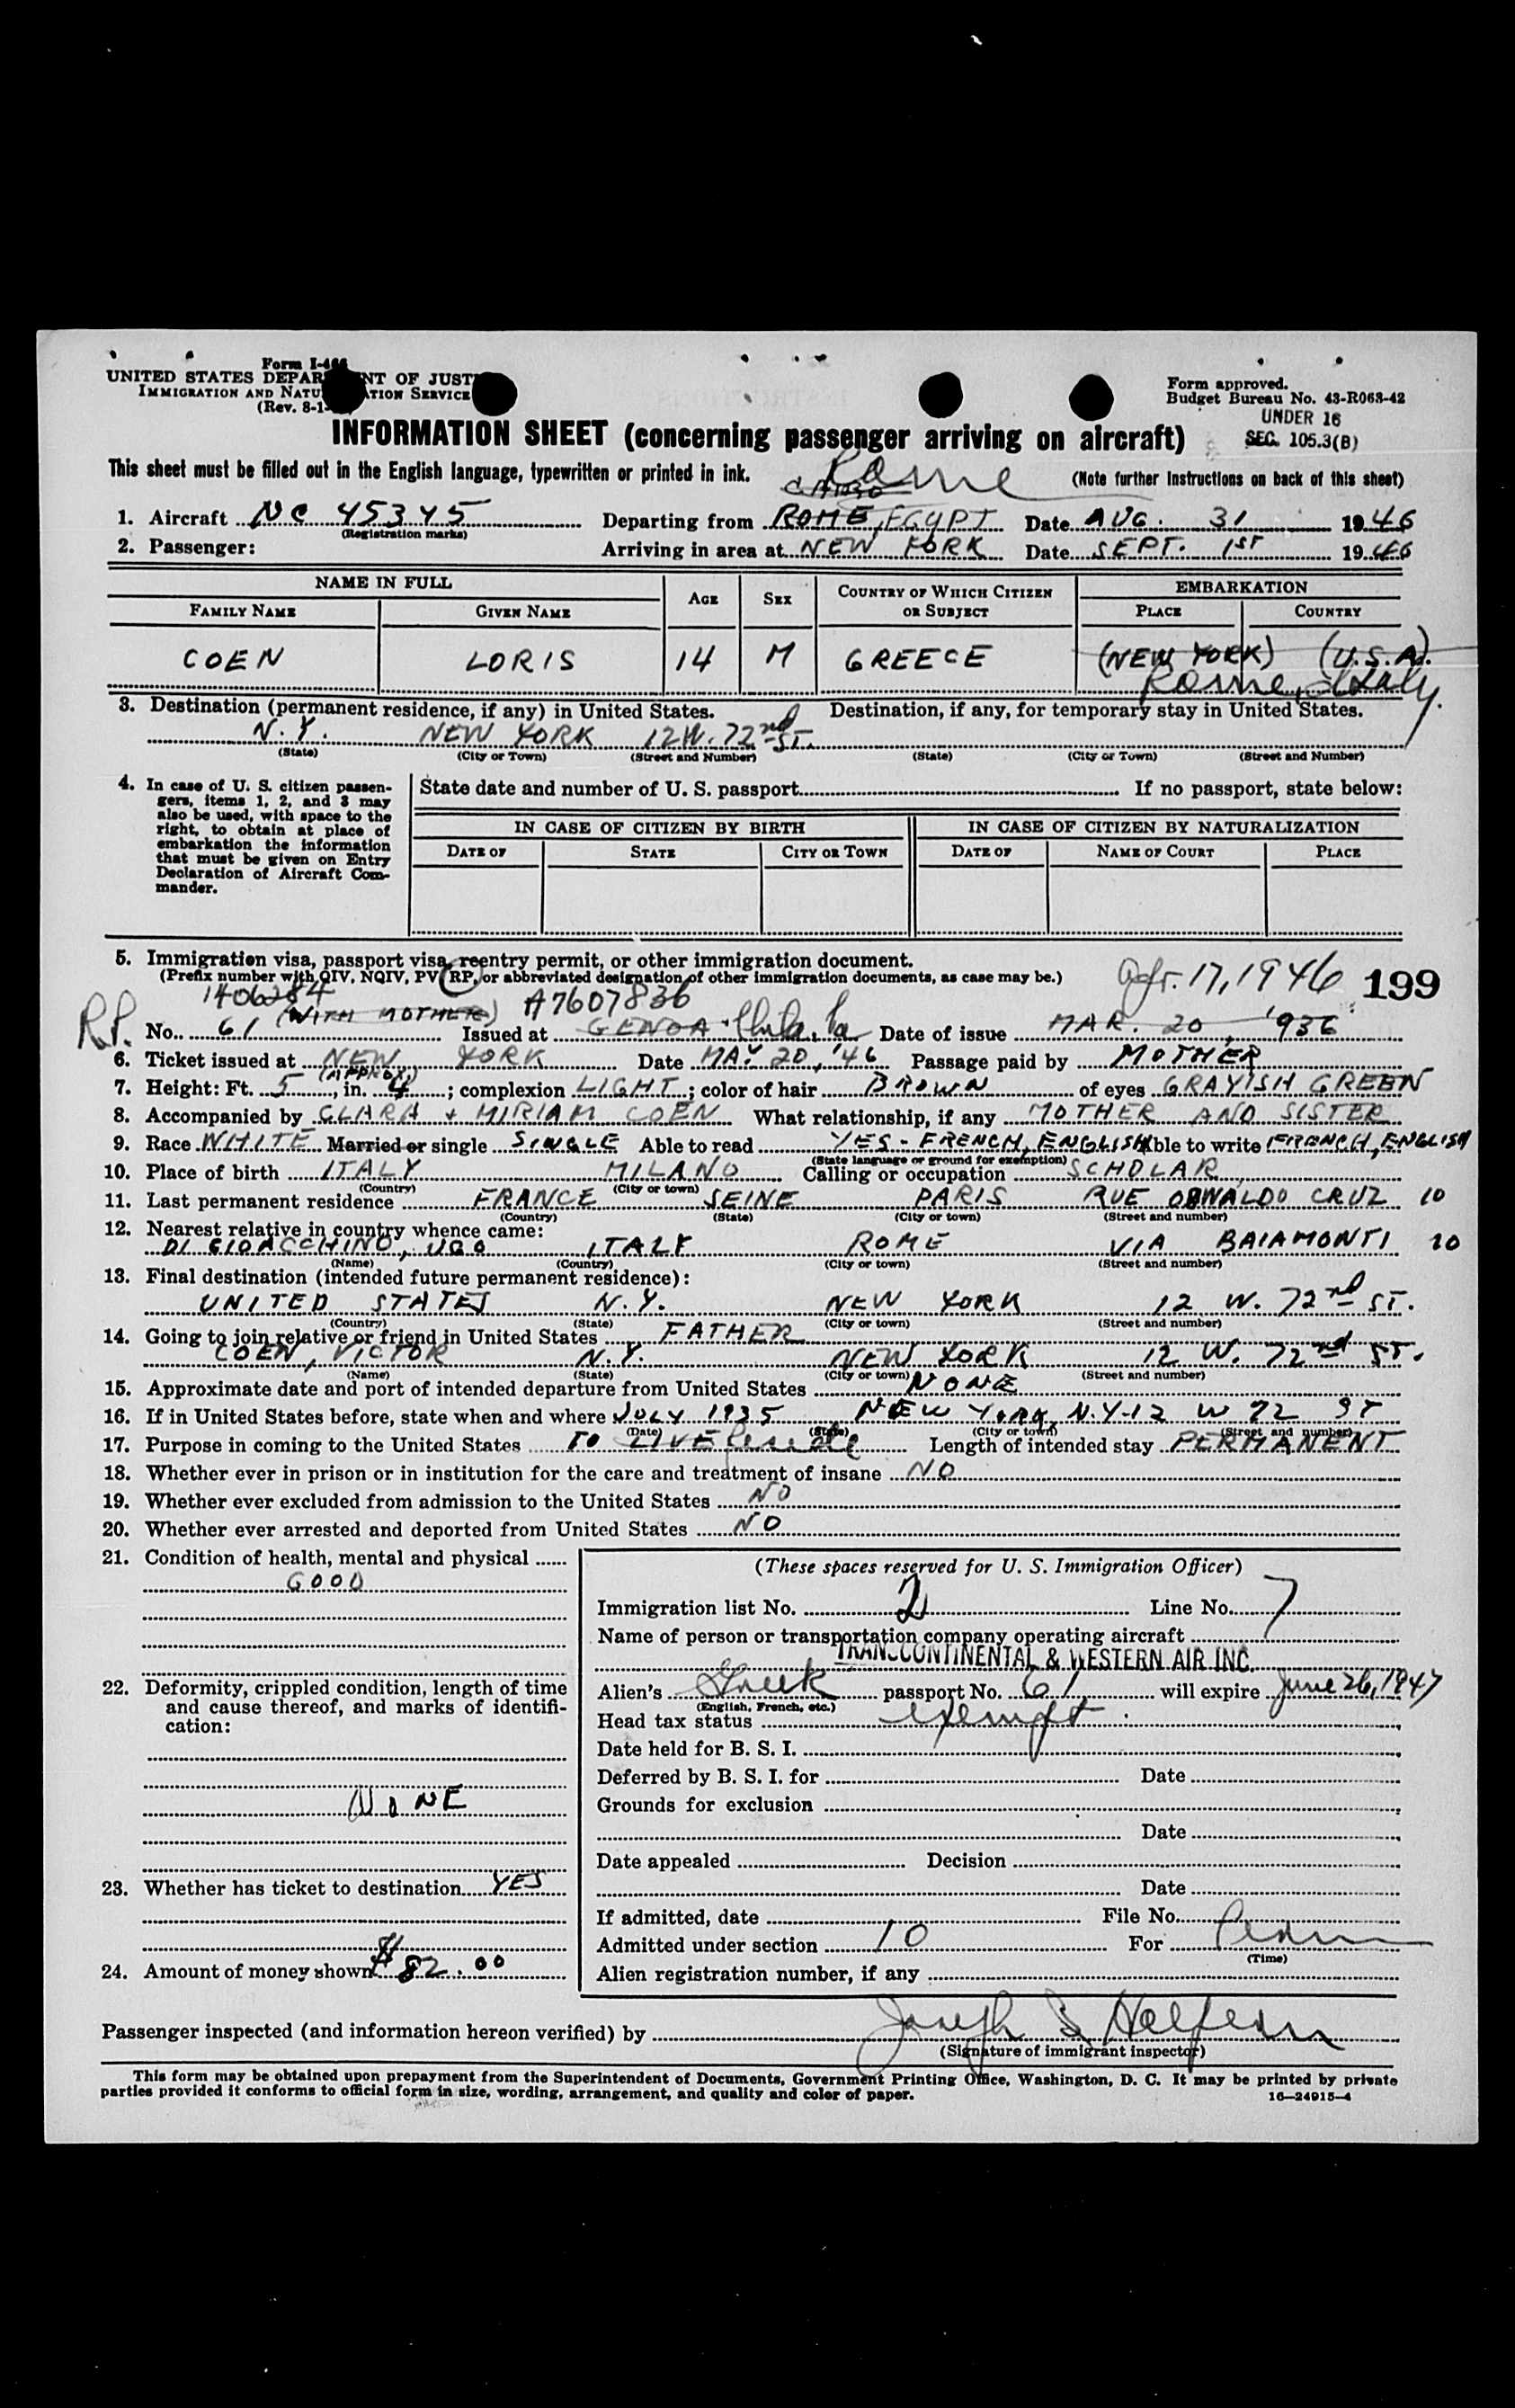 Form I-466
UNITED STATES DEPAR NT OF JUST
IMMIGRATION AND NATU ATION SERVICE
(Rev. 8-1-
Form approved.
Budget Bureau No. 43-R063-42
UNDER 16
SEC. 105.3(B)
INFORMATION SHEET (concerning passenger arriving on aircraft)
This sheet must be filled out in the English language, typewritten or printed in ink.
(Note further instructions on back of this sheet)
CAIRO Rome
1. Aircraft NC 45345 Departing from ROME, EGYPT Date AUG. 31 1946
(Registration marks)
2. Passenger: Arriving in area at NEW YORK Date SEPT. 1ST 1946
NAME IN FULL AGE SEX COUNTRY OF WHICH CITIZEN OR SUBJECT EMBARKATION
FAMILY NAME GIVEN NAME PLACE COUNTRY
COEN LORIS 14 M GREECE (NEW YORK) (U.S.A).
Rome, Italy.
3. Destination (permanent residence, if any) in United States. Destination, if any, for temporary stay in United States.
N.Y. NEW YORK 12 W. 72nd ST.
(State) (City or Town) (Street and Number) (State) (City or Town) (Street and Number)
4. In case of U. S. citizen passen-
gers, items 1, 2, and 3 may
also be used, with space to the
right, to obtain at place of
embarkation the information
that must be given on Entry
Declaration of Aircraft Com-
mander.
State date and number of U. S. passport If no passport, state below:
IN CASE OF CITIZEN BY BIRTH IN CASE OF CITIZEN BY NATURALIZATION
DATE OF STATE CITY OR TOWN DATE OF NAME OF COURT PLACE
5. Immigration visa, passport visa, reentry permit, or other immigration document.
(Prefix number with QIV, NQIV, PV, RP, or abbreviated designation of other immigration documents, as case may be.)
Apr. 17, 1946 199
1406284 A7607836
(WITH MOTHER)
R.P. No. 61 Issued at GENOA Phila, Pa Date of issue MAR. 20, 1936
6. Ticket issued at NEW YORK Date MAY 20, '46 Passage paid by MOTHER
(APPROX.)
7. Height: Ft. 5, in. 4; complexion LIGHT; color of hair BROWN of eyes GRAYISH GREEN
8. Accompanied by CLARA & MIRIAM COEN What relationship, if any MOTHER AND SISTER
9. Race WHITE Married or single SINGLE Able to read YES - FRENCH, ENGLISH Able to write FRENCH, ENGLISH
(State language or ground for exemption)
10. Place of birth ITALY MILANO Calling or occupation SCHOLAR
(Country) (City or town)
11. Last permanent residence FRANCE SEINE PARIS RUE OSWALDO CRUZ 10
(Country) (State) (City or town) (Street and number)
12. Nearest relative in country whence came:
DI GIOACCHINO, UGO ITALY ROME VIA BAIAMONTI 10
(Name) (Country) (City or town) (Street and number)
13. Final destination (intended future permanent residence):
UNITED STATES N.Y. NEW YORK 12 W. 72nd ST.
(Country) (State) (City or town) (Street and number)
14. Going to join relative or friend in United States FATHER
COEN, VICTOR N.Y. NEW YORK 12 W. 72nd ST.
(Name) (State) (City or town) (Street and number)
15. Approximate date and port of intended departure from United States NONE
16. If in United States before, state when and where JULY 1935 NEW YORK, N.Y-12 W 72 ST
(Date) (State) (City or town) (Street and number)
17. Purpose in coming to the United States TO LIVE reside Length of intended stay PERMANENT
18. Whether ever in prison or in institution for the care and treatment of insane NO
19. Whether ever excluded from admission to the United States NO
20. Whether ever arrested and deported from United States NO
21. Condition of health, mental and physical
GOOD
22. Deformity, crippled condition, length of time
and cause thereof, and marks of identifi-
cation:
NONE
23. Whether has ticket to destination YES
24. Amount of money shown $82.00
(These spaces reserved for U. S. Immigration Officer)
Immigration list No. 2 Line No. 7
Name of person or transportation company operating aircraft
TRANSCONTINENTAL & WESTERN AIR INC.
Alien's Greek passport No. 61 will expire June 26, 1947
(English, French, etc.)
Head tax status exempt
Date held for B. S. I.
Deferred by B. S. I. for Date
Grounds for exclusion
Date
Date appealed Decision
Date
If admitted, date File No.
Admitted under section 10 For Perm
(Time)
Alien registration number, if any
Passenger inspected (and information hereon verified) by Joseph S Halfern
(Signature of immigrant inspector)
This form may be obtained upon prepayment from the Superintendent of Documents, Government Printing Office, Washington, D. C. It may be printed by private
parties provided it conforms to official form in size, wording, arrangement, and quality and color of paper.
16—24915-4